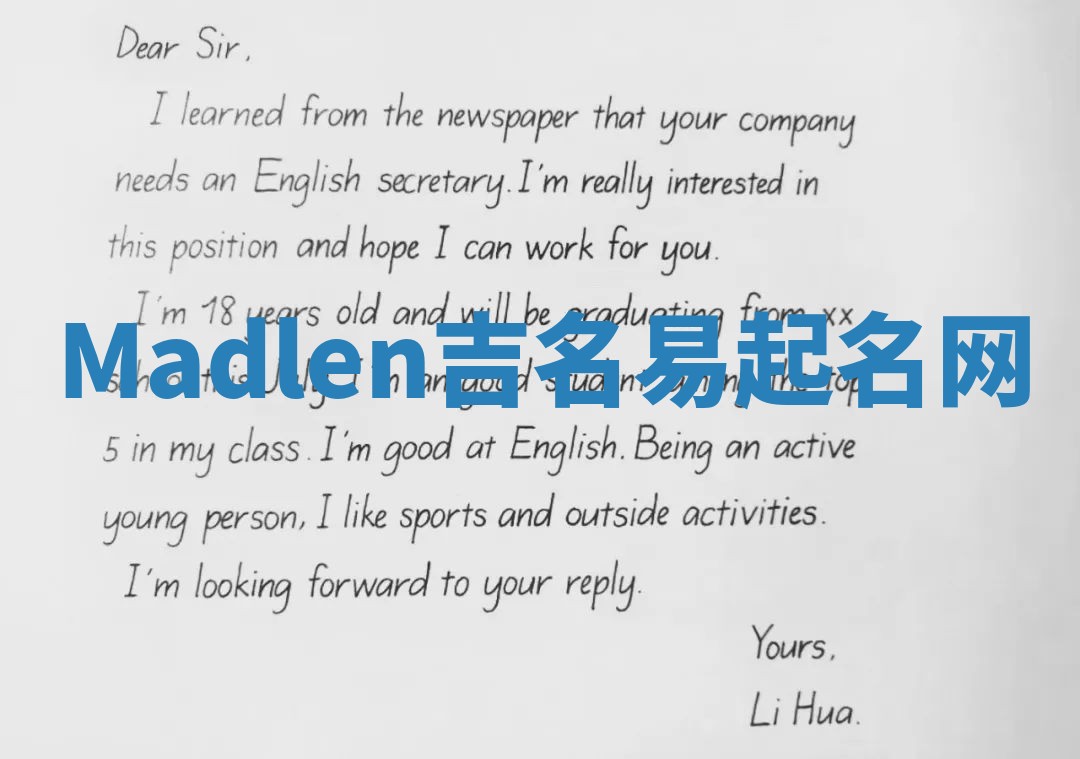 Dear Sir,
I learned from the newspaper that your company
needs an English secretary. I'm really interested in
this position and hope I can work for you.
I'm 18 years old and will be graduating from xx
Madlen吉名易起名网
school this July. I'm an good student among the top
5 in my class. I'm good at English. Being an active
young person, I like sports and outside activities.
I'm looking forward to your reply.
Yours,
Li Hua.